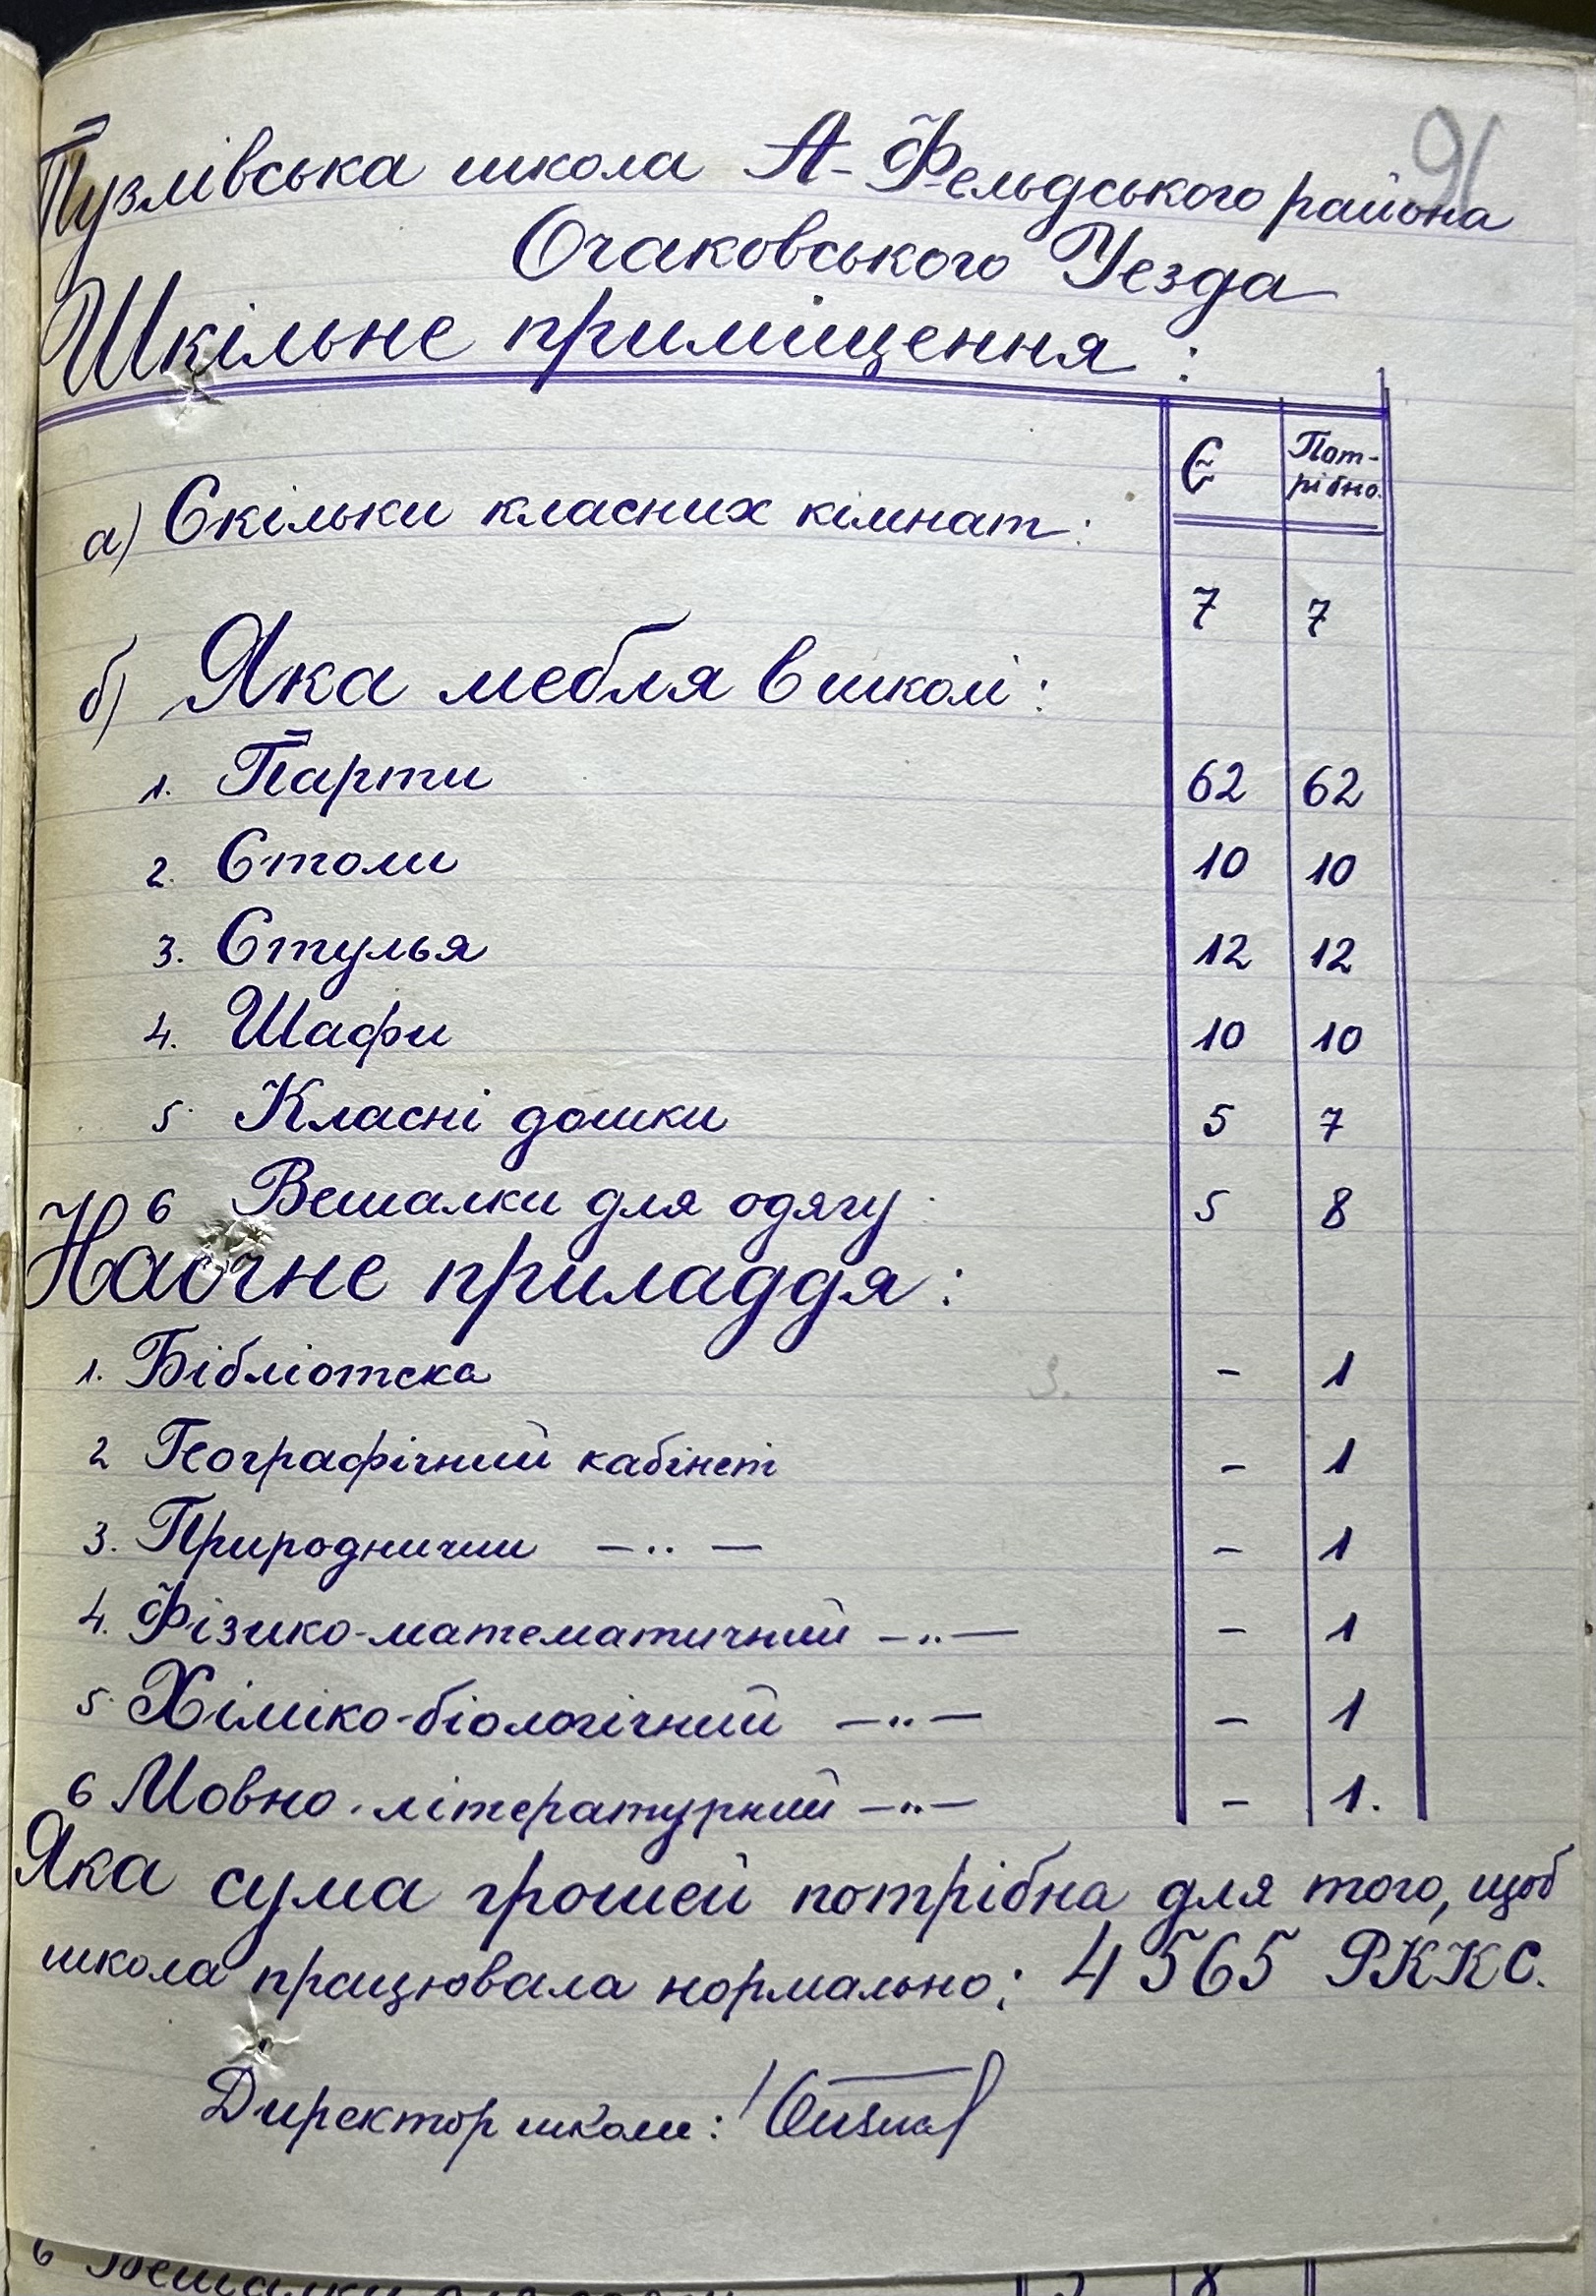 91
Пузлівська школа А-Фельдського района
Очаковського Уезда
Шкільне приміщення:
Є Пот-
рібно.
а) Скільки класних кімнат:
7 7
б) Яка мебля в школі:
1. Парти 62 62
2. Столи 10 10
3. Стулья 12 12
4. Шафи 10 10
5. Класні дошки 5 7
6 Вешалки для одягу 5 8
Наочне приладдя:
1. Бібліотека 3. - 1
2 Географічний кабінет - 1
3. Природничии —..— - 1
4. Фізико-математичний —..— - 1
5. Хіміко-біологічний —..— - 1
6 Мовно-літературний —..— - 1.
Яка сума грошей потрібна для того, щоб
школа працювала нормально: 4565 РККС.
Директор школи:
6 Вешалки для